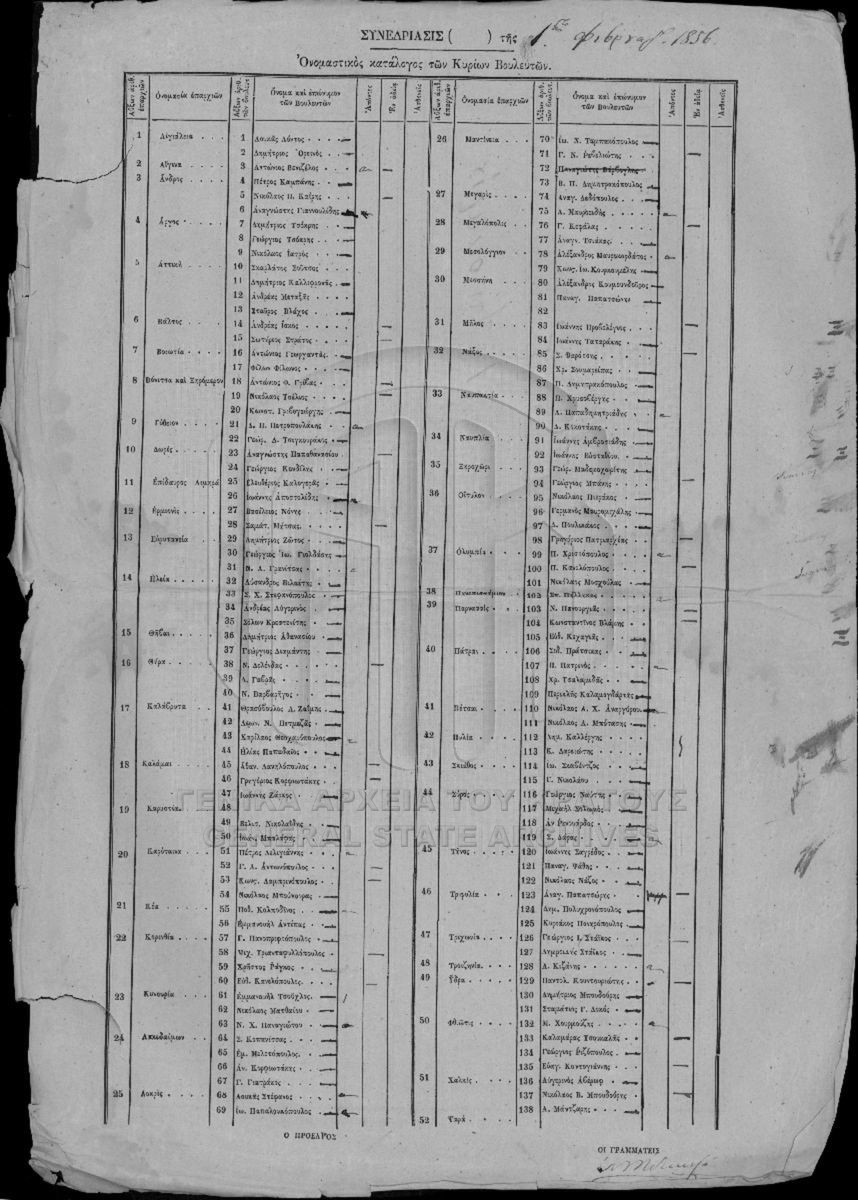 ΣΥΝΕΔΡΙΑΣΙΣ ( ) τῆς 1 1856
Ὀνομαστικὸς κατάλογος τῶν Κυρίων Βουλευτῶν.
Αὔξων ἀριθ. ἐπαρχιῶν Ὀνομασία ἐπαρχιῶν Αὔξων ἀριθ. τῶν βουλευτ. Ὄνομα καὶ ἐπώνυμον τῶν Βουλευτῶν Ἀπόντες Ἐν ἀδείᾳ Ἀσθενεῖς
1 Αἰγιάλεια 1 Λουκᾶς Λόντος
2 Δημήτριος Ὀρεινὸς
2 Αἴγινα 3 Ἀντώνιος Βενιζέλος
3 Ἄνδρος 4 Πέτρος Καμπάνης
5 Νικόλαος Π. Καΐρης
6 Ἀναγνώστης Γιαννουλίδης
4 Ἄργος 7 Δημήτριος Τσόκρης
8 Γεώργιος Τσόκρης
9 Νικόλαος Ἰατρὸς
5 Ἀττικὴ 10 Σκαρλάτος Σοῦτσος
11 Δημήτριος Καλλιφρονᾶς
12 Ἀνδρέας Μεταξᾶς
13 Σταῦρος Βλάχος
6 Βάλτος 14 Ἀνδρέας Ἴσκος
15 Σωτήριος Στράτος
7 Βοιωτία 16 Ἀντώνιος Γεωργαντᾶς
17 Φίλων Φίλωνος
8 Βόνιτσα καὶ Ξηρόμερον 18 Ἀντώνιος Θ. Γρίβας
19 Νικόλαος Τσέλιος
20 Κωνστ. Γριβογιώργης
9 Γύθειον 21 Δ. Π. Πετροπουλάκης
22 Γεώρ. Δ. Τσιγκουράκος
10 Δωρὶς 23 Ἀναγνώστης Παπαθανασίου
24 Γεώργιος Κονδύλης
11 Ἐπίδαυρος Λιμηρὰ 25 Ἐλευθέριος Καλογερᾶς
26 Ἰωάννης Ἀποστολίδης
12 Ἑρμιονὶς 27 Βασίλειος Νόνης
28 Σταμάτ. Μήτσας
13 Εὐρυτανεία 29 Δημήτριος Ζῶτος
30 Γεώργιος Ἰω. Γιολδάσης
31 Ν. Α. Γρανίτσας
14 Ἠλεία 32 Λύσανδρος Βιλαέτης
33 Σ. Χ. Στεφανόπουλος
34 Ἀνδρέας Αὐγερινὸς
35 Σόλων Κρεστενίτης
15 Θῆβαι 36 Δημήτριος Ἀθανασίου
37 Γεώργιος Διαμάντης
16 Θύρα 38 Ν. Δελένδας
39 Α. Γαβρᾶς
40 Ν. Βαρβαρῆγος
17 Καλάβρυτα 41 Θρασύβουλος Α. Ζαΐμης
42 Ν. Πετμεζᾶς
43 Χαρίλαος Θεοχαρόπουλος
44 Ἠλίας Παπαδαῖος
18 Καλάμαι 45 Ἀθαν. Δανηλόπουλος
46 Γρηγόριος Κορφιωτάκης
47 Ἰωάννης Ζάρκος
19 Καρυστία 48
49 Βελισ. Νικολαΐδης
50 Ἰωάν. Μπαλάφας
20 Καρύταινα 51 Πέτρος Δελιγιάννης
52 Γ. Α. Ἀντωνόπουλος
53 Κωνσ. Λαμπρινόπουλος
54 Νικόλαος Μπούκουρας
21 Κέα 55 Ποθ. Κολπονδίνος
56 Ἐμμανουὴλ Ἀντύπας
22 Κορινθία 57 Γ. Πανοπριφτόπουλος
58 Ψιχ. Τριανταφυλλόπουλος
59 Χρῆστος Ράγκος
60 Εὐθ. Κανελόπουλος
23 Κυνουρία 61 Ἐμμανουὴλ Τσούχλος
62 Νικόλαος Ματθαίου
63 Ν. Χ. Παναγιώτου
24 Λακεδαίμων 64 Σ. Κοπανίτσας
65 Ἐμ. Μελετόπουλος
66 Ἀν. Κορφιωτάκης
67 Γ. Γιατράκος
25 Λοκρὶς 68 Λουκᾶς Στέφανος
69 Ἰω. Παπαλουκόπουλος
Ο ΠΡΟΕΔΡΟΣ
Αὔξων ἀριθ. ἐπαρχιῶν Ὀνομασία ἐπαρχιῶν Αὔξων ἀριθ. τῶν βουλευτ. Ὄνομα καὶ ἐπώνυμον τῶν Βουλευτῶν Ἀπόντες Ἐν ἀδείᾳ Ἀσθενεῖς
26 Μαντίνεια 70 Ἰω. Ν. Ταμπακόπουλος
71 Γ. Ν. Ρεβελιώτης
72 Παναγιώτης Βάρβογλης
73 Β. Π. Δημητρακόπουλος
27 Μεγαρὶς 74 Ἀναγ. Δεδόπουλος
75 Α. Μαυρουδῆς
28 Μεγαλόπολις 76 Γ. Κεφάλας
77 Ἀναγν. Τσιάκας
29 Μεσολόγγιον 78 Ἀλέξανδρος Μαυροκορδάτος
79 Κωνσ. Ἰω. Κουρκουμέλης
30 Μεσσήνη 80 Ἀλέξανδρος Κουμουνδοῦρος
81 Παναγ. Παπατσώνης
82
31 Μῆλος 83 Ἰωάννης Προβελέγιος
84 Ἰωάννης Ταταράκης
32 Νάξος 85 Σ. Φαρότσης
86 Χρ. Σουμαρείπας
87 Π. Δημητρακόπουλος
33 Ναυπακτία 88 Π. Χρυσοβέργης
89 Α. Παπαδημητριάδης
90 Δ. Κοκοτάκης
34 Ναυπλία 91 Ἰωάννης Ἀμβροσιάδης
92 Ἰωάννης Εὐσταθίου
35 Ξηροχώρι 93 Γεώρ. Μαδεμοχωρίτης
94 Γεώργιος Μπάνης
36 Οἴτυλον 95 Νικόλαος Πιεράκος
96 Γερμανὸς Μαυρομιχάλης
97 Δ. Πουλικάκος
98 Γρηγόριος Πατριαρχέας
37 Ὀλυμπία 99 Π. Χριστόπουλος
100 Π. Κανελόπουλος
101 Νικόλαος Μοσχούλας
38 Πανεπιστήμιον 102 Στ. Πέλληκας
39 Παρνασσὶς 103 Ν. Πανουργιᾶς
104 Κωνσταντῖνος Βλάμης
105 Εὐθ. Κεχαγιᾶς
40 Πάτραι 106 Σιδ. Πράτσικας
107 Π. Πατρινὸς
108 Χρ. Τσαλαμιδᾶς
109 Περικλῆς Καλαμογδάρτης
41 Πέτσαι 110 Νικόλαος Α. Χ. Ἀναργύρου
111 Νικόλαος Α. Μπότασης
42 Πυλία 112 Δημ. Καλλέργης
113 Κ. Δαρειώτης
43 Σκιάθος 114 Ἰω. Σκαβέντζος
115 Γ. Νικολάου
44 Σῦρος 116 Γεώργιος Ναύτης
117 Μιχαὴλ Σαλωμὸς
118 Ἀν Ρενουάρδος
119 Σ. Δάρας
45 Τῆνος 120 Ἰωάννης Σαγρέδος
121 Παναγ. Ψάθης
122 Νικόλαος Νάζος
46 Τριφυλία 123 Ἀναγ. Παπατσώρης
124 Δημ. Πολυχρονόπουλος
125 Κυριάκος Πονηρόπουλος
47 Τριχωνία 126 Γεώργιος Ι. Στάϊκος
127 Δημητριανὸς Στάϊκος
48 Τροιζηνία 128 Α. Κιζάνης
49 Ὕδρα 129 Παντολ. Κουντουριώτης
130 Δημήτριος Μπουδούρης
131 Σταμάτιος Γ. Δοκὸς
50 Φθιῶτις 132 Μ. Χουρμούζης
133 Καλαμάρας Τσουκαλᾶς
134 Γεώργιος Ριζόπουλος
135 Εὐαγ. Κοντογιάννης
51 Χαλκὶς 136 Αὐγερινὸς Ἀβέρωφ
137 Νικόλαος Β. Μπουδούρης
138 Α. Μάντζαρης
52 Ψαρὰ
ΟΙ ΓΡΑΜΜΑΤΕΙΣ
ΓΕΝΙΚΑ ΑΡΧΕΙΑ ΤΟΥ ΚΡΑΤΟΥΣ
GENERAL STATE ARCHIVES